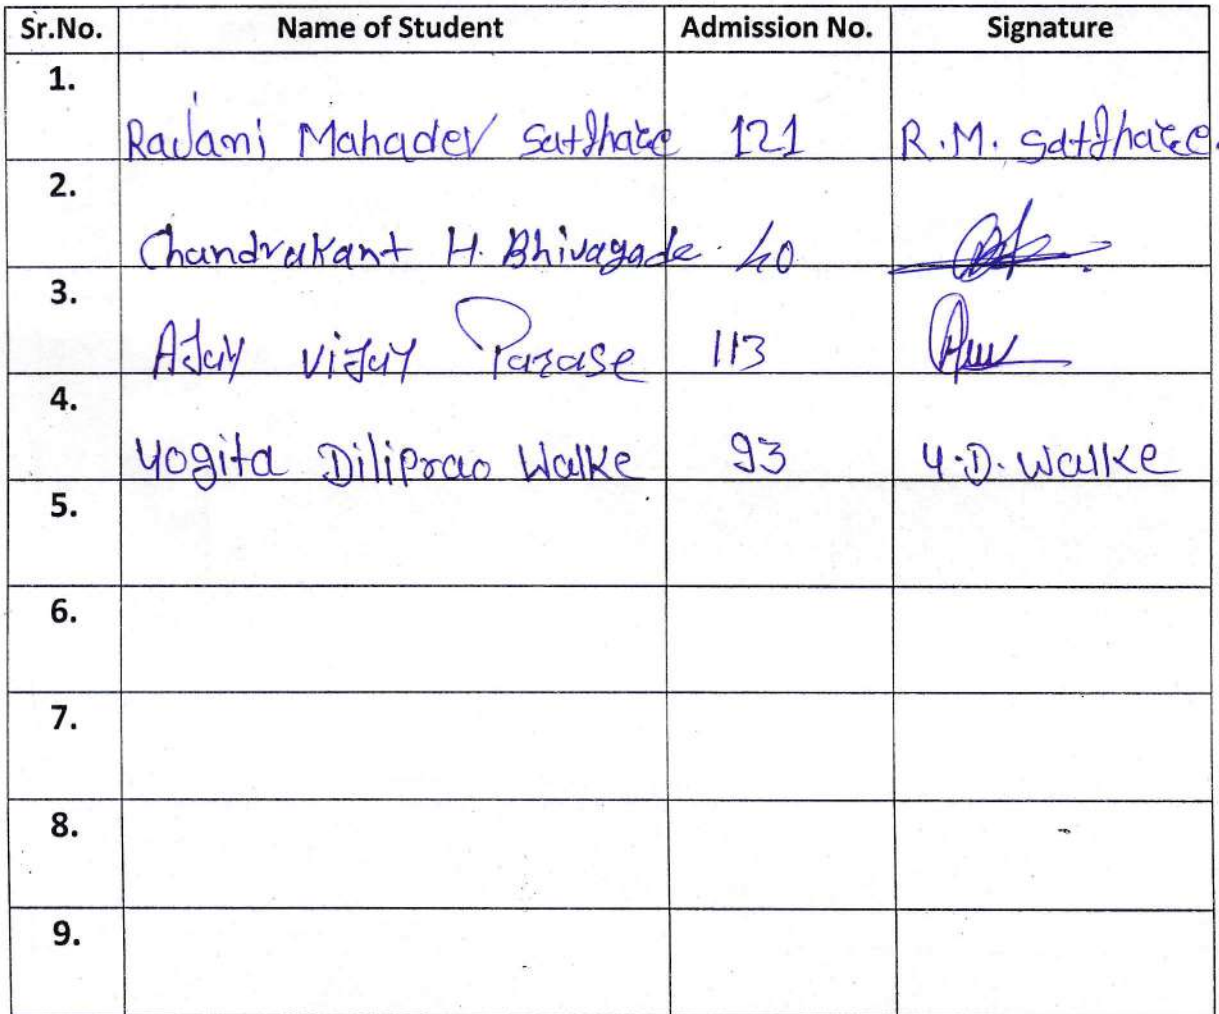 Sr.No. Name of Student Admission No. Signature
1.
Rajani Mahadev 121 R.M.
2.
Chandrakant H. Bhivagade 40
3.
AJay viJay Parase 113
4.
Yogita Diliprao Walke 93 Y.D. Walke
5.
6.
7.
8.
9.